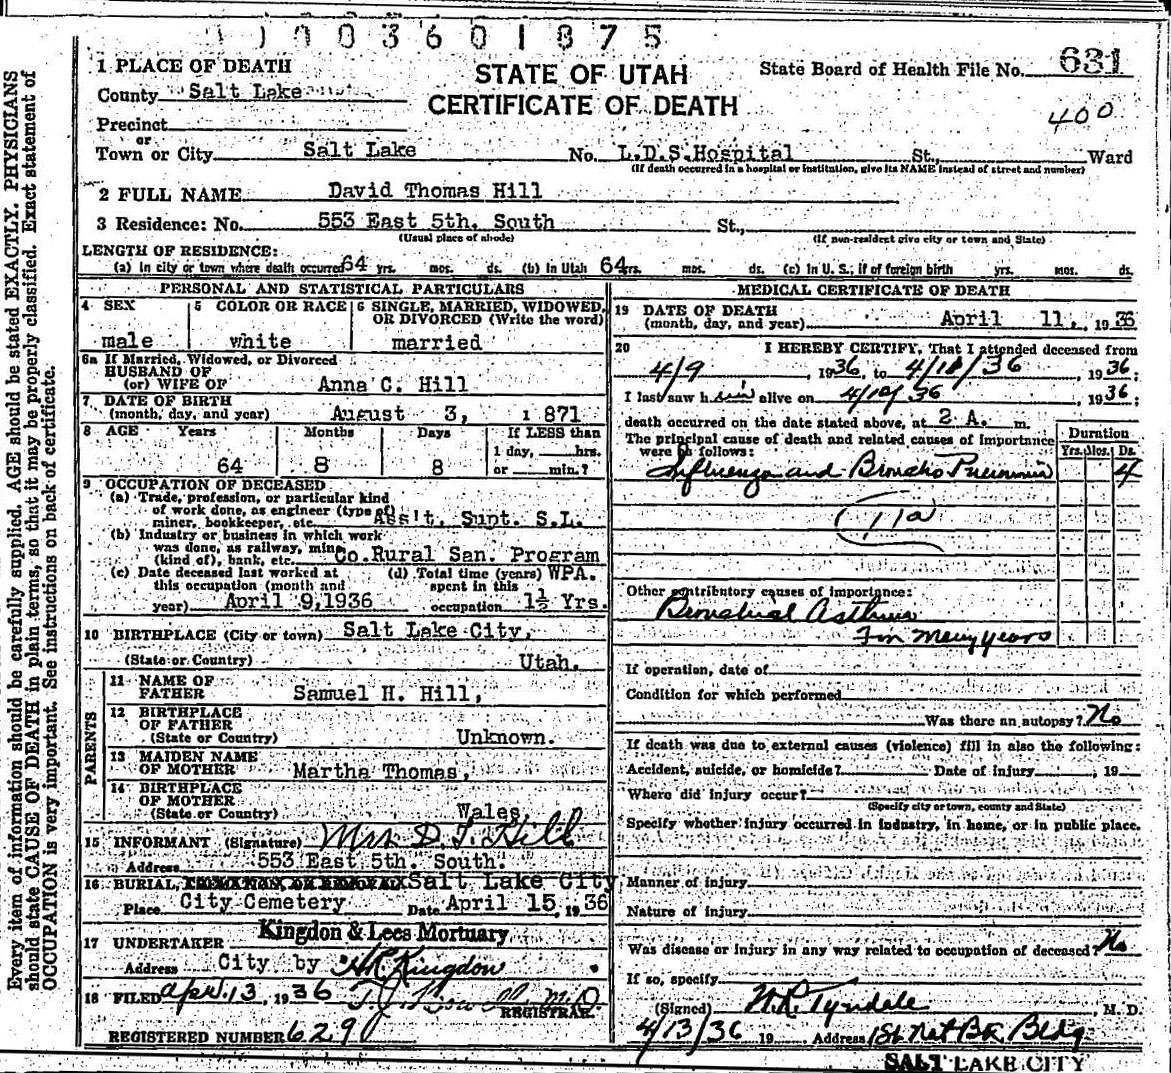 1 1 0 0 3 6 0 1 8 7 5
1 PLACE OF DEATH
County Salt Lake
Precinct
or
Town or City Salt Lake
STATE OF UTAH
CERTIFICATE OF DEATH
State Board of Health File No. 631
400
No. L.D.S. Hospital St., Ward
(If death occurred in a hospital or institution, give its NAME instead of street and number)
2 FULL NAME David Thomas Hill
3 Residence: No. 553 East 5th. South St.,
(Usual place of abode) (If non-resident give city or town and State)
LENGTH OF RESIDENCE:
(a) In city or town where death occurred 64 yrs. mos. ds. (b) In Utah 64 yrs. mos. ds. (c) In U. S., if of foreign birth yrs. mos. ds.
PERSONAL AND STATISTICAL PARTICULARS
4 SEX
male
5 COLOR OR RACE
white
6 SINGLE, MARRIED, WIDOWED,
OR DIVORCED (Write the word)
married
6a If Married, Widowed, or Divorced
HUSBAND OF
(or) WIFE OF Anna C. Hill
7 DATE OF BIRTH
(month, day, and year) August 3, 1871
8 AGE Years Months Days If LESS than
1 day, hrs.
64 8 8 or min.?
9 OCCUPATION OF DECEASED
(a) Trade, profession, or particular kind
of work done, as engineer (type of)
miner, bookkeeper, etc. Ass't. Supt. S.L.
(b) Industry or business in which work
was done, as railway, mine
(kind of), bank, etc. Co.Rural San. Program
(c) Date deceased last worked at
this occupation (month and
year) April 9,1936
(d) Total time (years) WPA.
spent in this
occupation 1½ Yrs.
10 BIRTHPLACE (City or town) Salt Lake City,
(State or Country) Utah.
PARENTS
11 NAME OF
FATHER Samuel H. Hill,
12 BIRTHPLACE
OF FATHER
(State or Country) Unknown.
13 MAIDEN NAME
OF MOTHER Martha Thomas,
14 BIRTHPLACE
OF MOTHER
(State or Country) Wales
15 INFORMANT (Signature) Mrs D. T. Hill
Address 553 East 5th. South.
16 BURIAL, Salt Lake City
Place City Cemetery Date April 15, 1936
17 UNDERTAKER Kingdon & Lees Mortuary
Address City by H.R. Kingdon
18 FILED Apr. 13, 1936 M D
REGISTRAR.
REGISTERED NUMBER 629
MEDICAL CERTIFICATE OF DEATH
19 DATE OF DEATH
(month, day, and year) April 11, 1936
20 I HEREBY CERTIFY, That I attended deceased from
4/9, 1936, to 4/10/36, 1936;
I last saw him alive on 4/10/36, 1936;
death occurred on the date stated above, at 2 A. m.
The principal cause of death and related causes of importance
were as follows:
Duration
Yrs. Mos. Ds.
Influenza and Broncho Pneumonia 4
11a
Other contributory causes of importance:
Bronchial Asthma
For many years
If operation, date of
Condition for which performed
Was there an autopsy? No
If death was due to external causes (violence) fill in also the following:
Accident, suicide, or homicide? Date of injury, 19
Where did injury occur?
(Specify city or town, county and State)
Specify whether injury occurred in industry, in home, or in public place.
Manner of injury
Nature of injury
Was disease or injury in any way related to occupation of deceased? No
If so, specify
(Signed) H.R. Tyndale, M. D.
4/13/36 19 Address 1st Nat Bk Bldg
SALT LAKE CITY
Every item of information should be carefully supplied. AGE should be stated EXACTLY. PHYSICIANS
should state CAUSE OF DEATH in plain terms, so that it may be properly classified. Exact statement of
OCCUPATION is very important. See instructions on back of certificate.